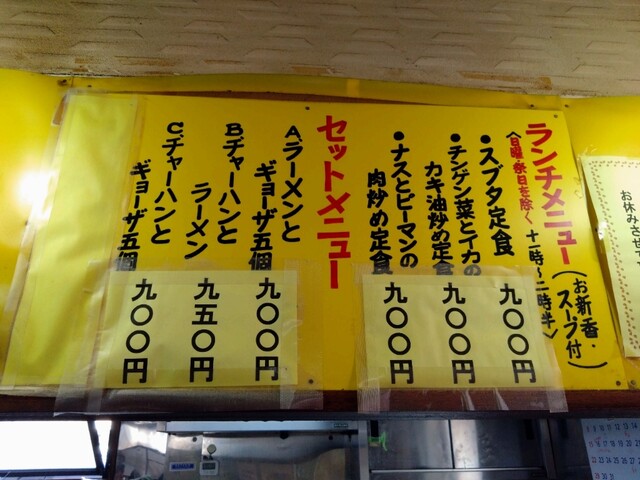 ランチメニュー(お新香・スープ付)
〈日曜・祭日を除く、十一時〜二時半〉
・スブタ定食
九〇〇円
・チンゲン菜とイカの
カキ油炒め定食
九〇〇円
・ナスとピーマンの
肉炒め定食
九〇〇円
セットメニュー
A.ラーメンと
ギョーザ五個
九〇〇円
B.チャーハンと
ラーメン
九五〇円
C.チャーハンと
ギョーザ五個
九〇〇円
お休みさせて